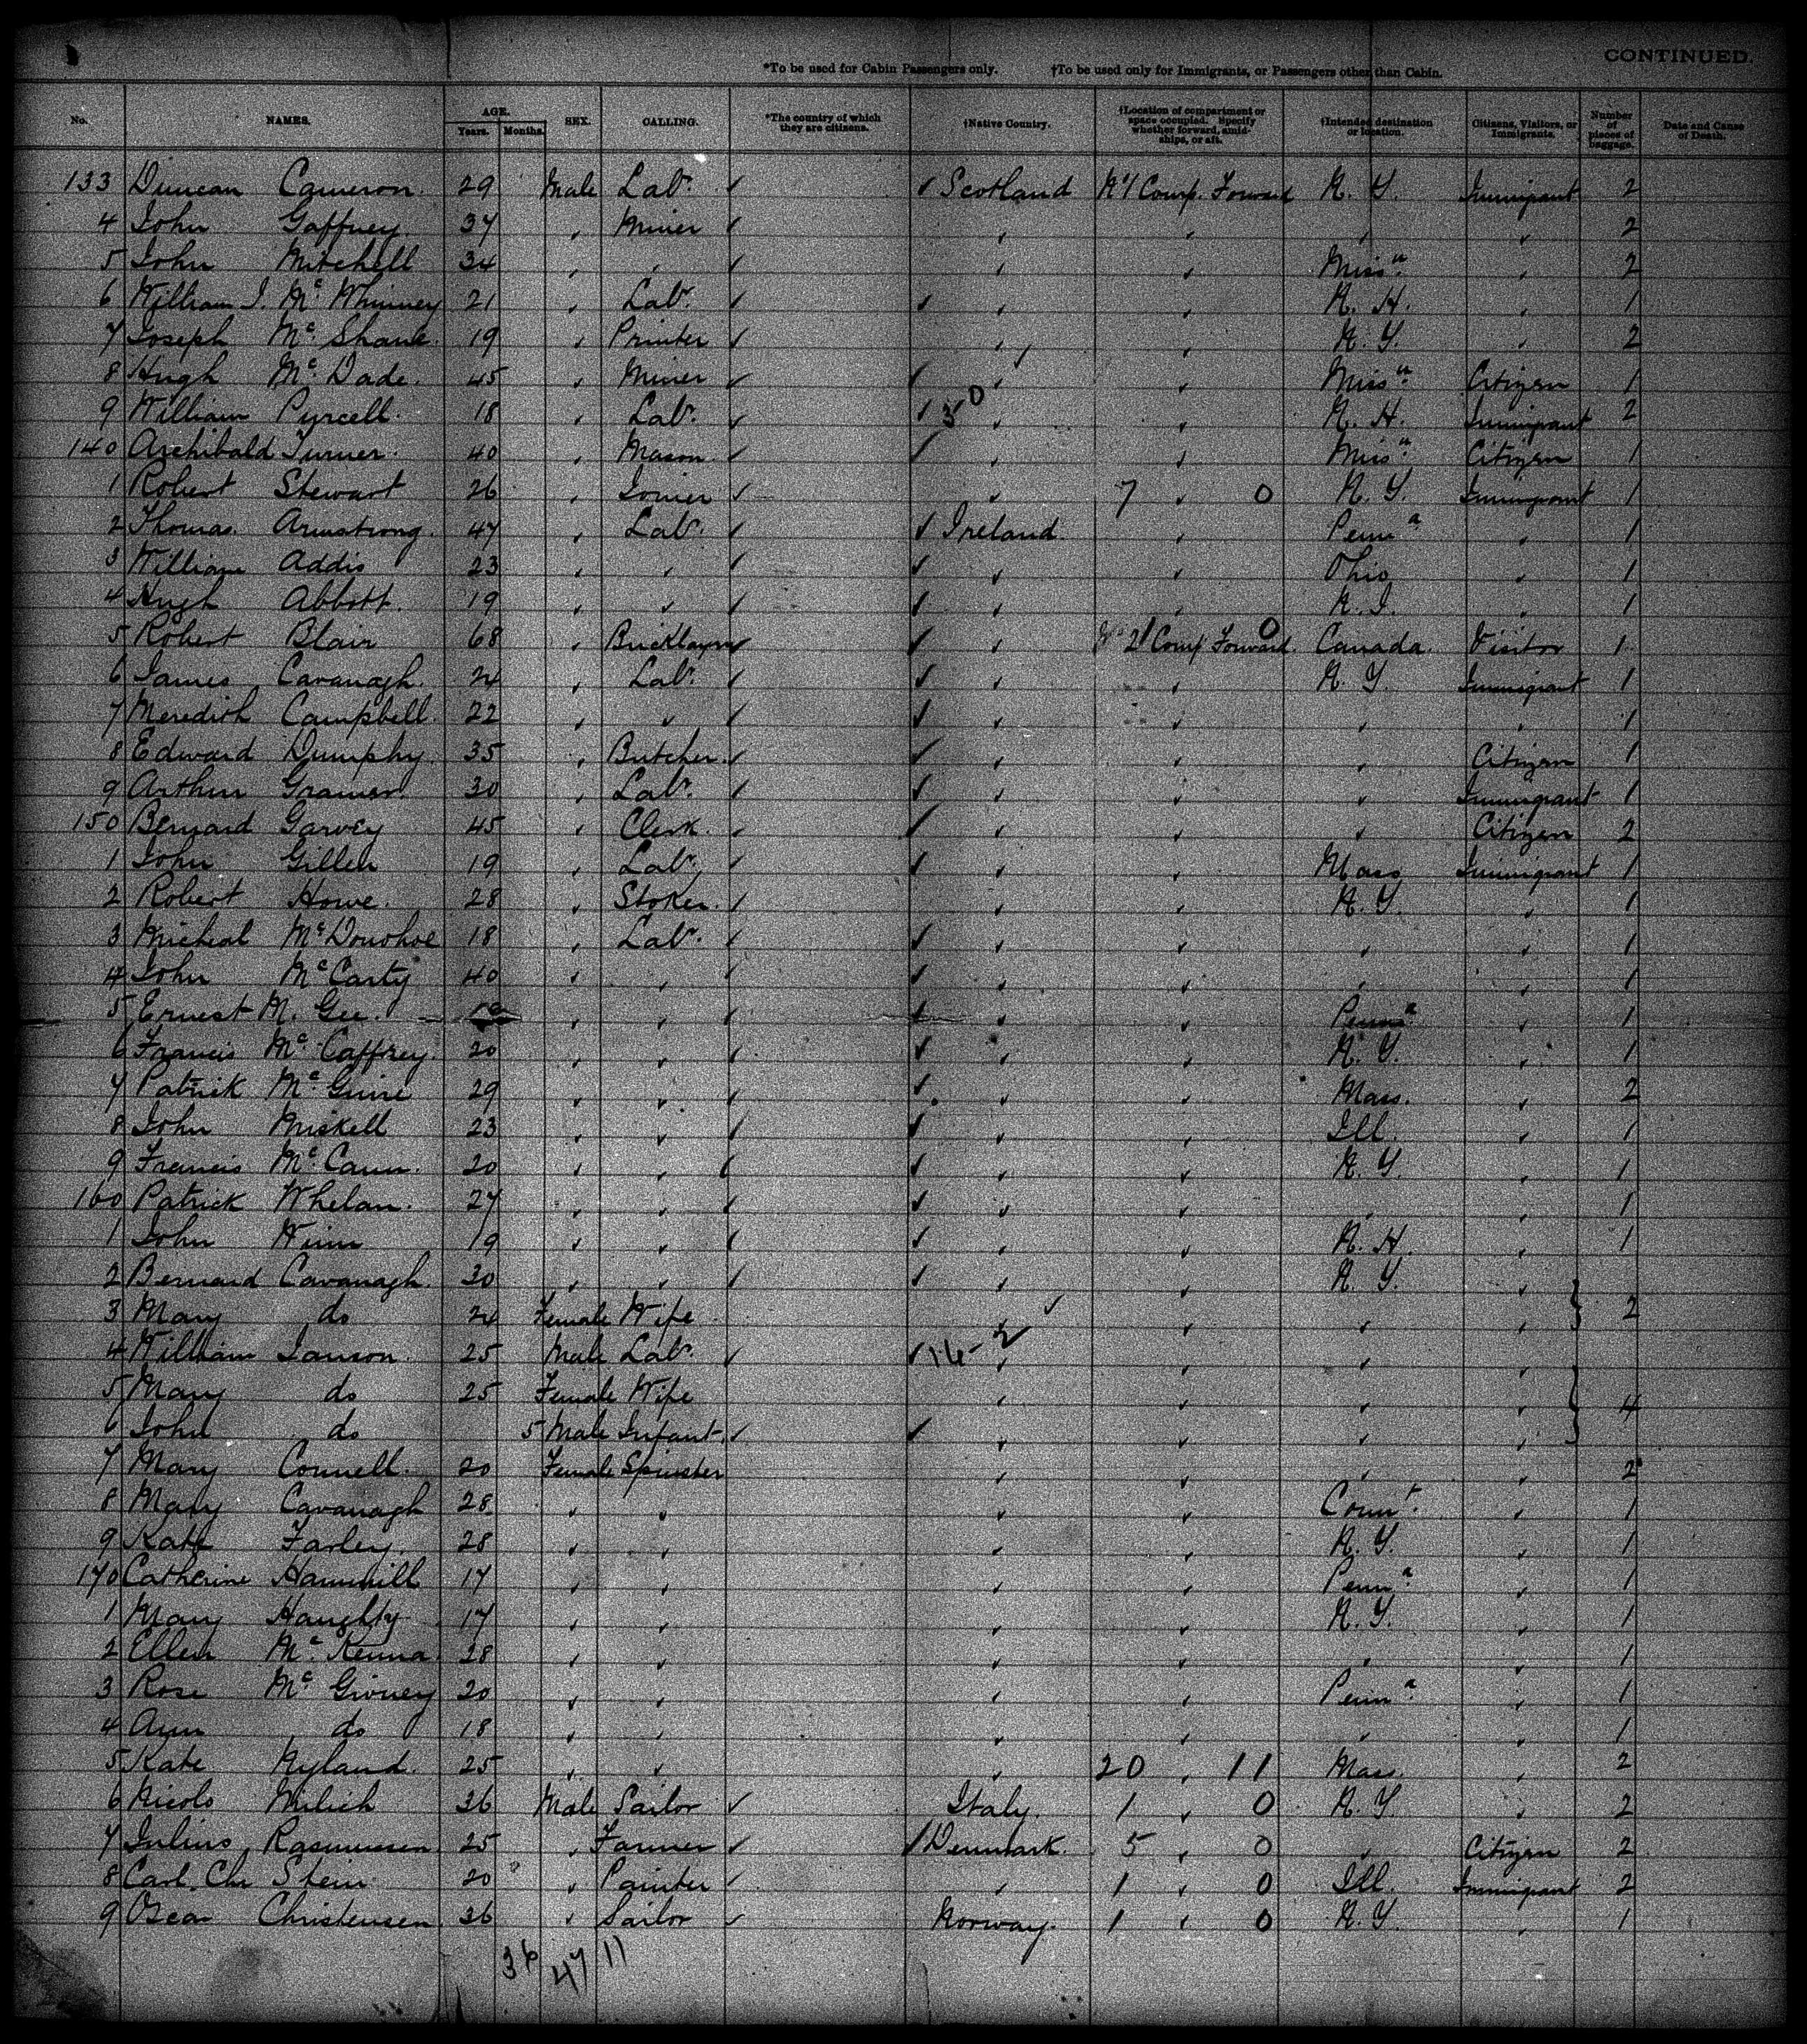 CONTINUED.
*To be used for Cabin Passengers only. †To be used only for Immigrants, or Passengers other than Cabin.
No. NAMES. AGE. Years. Months. SEX. CALLING. *The country of which they are citizens. †Native Country. †Location of compartment or space occupied. Specify whether forward, amidships, or aft. †Intended destination or location. Citizens, Visitors, or Immigrants. Number of pieces of baggage. Date and Cause of Death.
133 Duncan Cameron. 29 Male Labr. ✓ ✓ Scotland No 1 Comp. Forward N. Y. Immigrant 2
4 John Gaffney. 37 " Miner ✓ " " " " 2
5 John Mitchell 34 " " ✓ " " Missn. " 2
6 William J. Mc Whinney 21 " Labr. ✓ ✓ " " N. H. " 1
7 Joseph Mc Shane. 19 " Printer ✓ " " N. Y. " 2
8 Hugh Mc Dade. 45 " Miner ✓ ✓ " " Missn. Citizen 1
9 William Pyrcell. 18 " Labr. ✓ ✓ 30 " " N. H. Immigrant 2
140 Archibald Turner. 40 " Mason. ✓ ✓ " " Missn. Citizen 1
1 Robert Stewart 26 " Joiner ✓ " 7 " 0 N. Y. Immigrant 1
2 Thomas Armstrong. 47 " Labr. ✓ ✓ Ireland. " Penna " 1
3 William Addis 23 " " ✓ ✓ " " Ohio " 1
4 Hugh Abbott. 19 " " ✓ ✓ " " R. I. " 1
5 Robert Blair 68 " Bricklayer ✓ ✓ " No 2 Comp. Forward. 0 Canada. Visitor 1
6 James Cavanagh. 24 " Labr. ✓ ✓ " " N. Y. Immigrant 1
7 Meredith Campbell. 22 " " ✓ ✓ " " " " 1
8 Edward Dumphy. 35 " Butcher. ✓ ✓ " " " Citizen 1
9 Arthur Gramer. 30 " Labr. ✓ ✓ " " " Immigrant 1
150 Bernard Garvey 45 " Clerk. ✓ ✓ " " " Citizen 2
1 John Gillen 19 " Labr. ✓ ✓ " " Mass Immigrant 1
2 Robert Howe. 28 " Stoker. ✓ " " N. Y. " 1
3 Micheal Mc Donohoe 18 " Labr. ✓ ✓ " " " " 1
4 John Mc Carty 40 " " ✓ ✓ " " " " 1
5 Ernest M. Gee. " " ✓ ✓ " " Penna. " 1
6 Francis Mc Caffrey. 20 " " ✓ ✓ " " N. Y. " 1
7 Patrick Mc Guire 29 " " ✓ ✓ " " Mass. " 2
8 John Miskell 23 " " ✓ ✓ " " Ill. " 1
9 Francis Mc Cann. 20 " " ✓ ✓ " " N. Y. " 1
160 Patrick Whelan. 27 " " ✓ ✓ " " " " 1
1 John Winn 19 " " ✓ ✓ " " N. H. " 1
2 Bernard Cavanagh. 30 " " ✓ ✓ " " N. Y. "
3 Mary do 24 Female Wife " " " " } 2
4 William Janson. 25 Male Labr. ✓ ✓ 16-2 " " " "
5 Mary do 25 Female Wife " " " " } 4
6 John do 5 Male Infant. ✓ ✓ " " " "
7 Mary Connell. 20 Female Spinster " " " " 2
8 Mary Cavanagh 28 " " " " Connt. " 1
9 Kate Farley. 28 " " " " N. Y. " 1
170 Catherine Hammill 17 " " " " Penna. " 1
1 Mary Haughty 17 " " " " N. Y. " 1
2 Ellen Mc Kenna 28 " " " " " " 1
3 Rose Mc Givney 20 " " " " Penna. " 1
4 Ann do 18 " " " " " " 1
5 Kate Nyland. 25 " " " 20 " 11 Mass. " 2
6 Nicolo Milich 36 Male Sailor ✓ Italy. 1 " 0 N. Y. " 2
7 Julius Rasmussen 25 " Farmer ✓ ✓ Denmark. 5 " 0 " Citizen 2
8 Carl. Chr Stein 20 " Painter ✓ " 1 " 0 Ill. Immigrant 2
9 Oscar Christensen 36 " Sailor ✓ Norway. 1 " 0 N. Y. " 1
36 47 11